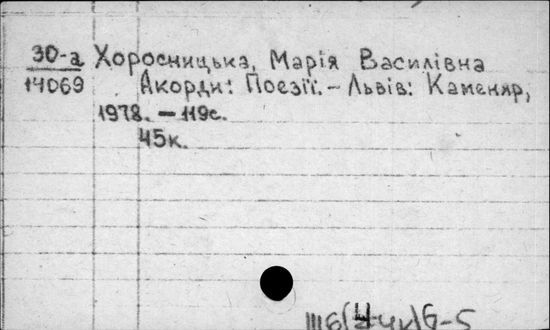 30-а Хоросницька, Марія Василівна
14069 Акорди: Поезії. – Львів: Каменяр,
1978. – 119с.
45к.
Ш6(4Ук)6-5